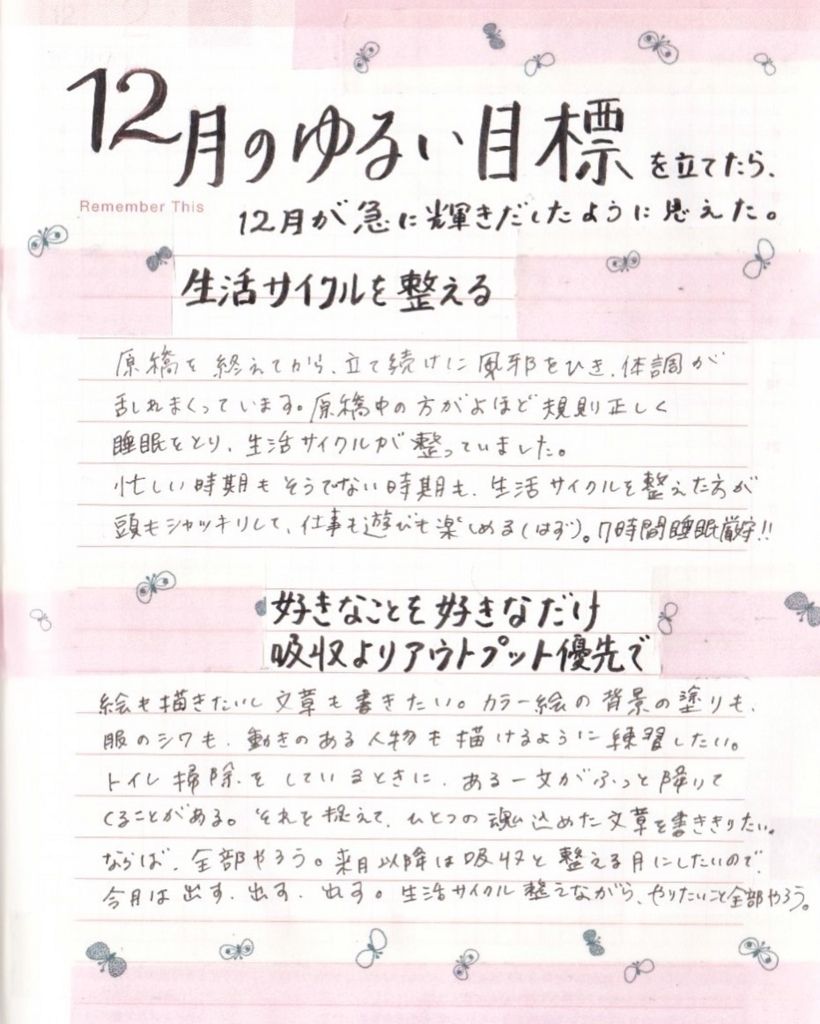 12月のゆるい目標を立てたら、
Remember This
12月が急に輝きだしたように思えた。
生活サイクルを整える
原稿を終えてから、立て続けに風邪をひき、体調が
乱れまくっています。原稿中の方がよほど規則正しく
睡眠をとり、生活サイクルが整っていました。
忙しい時期もそうでない時期も、生活サイクルを整えた方が
頭もシャッキリして、仕事も遊びも楽しめる(はず)。7時間睡眠厳守!!
好きなことを好きなだけ
吸収よりアウトプット優先で
絵も描きたいし文章も書きたい。カラー絵の背景の塗りも、
服のシワも、動きのある人物も描けるように練習したい。
トイレ掃除をしているときに、ある一文がふっと降りて
くることがある。それを捉えて、ひとつの魂込めた文章を書ききりたい。
ならば、全部やろう。来月以降は吸収と整える月にしたいので、
今月は出す、出す、出す。生活サイクル整えながら、やりたいこと全部やろう。